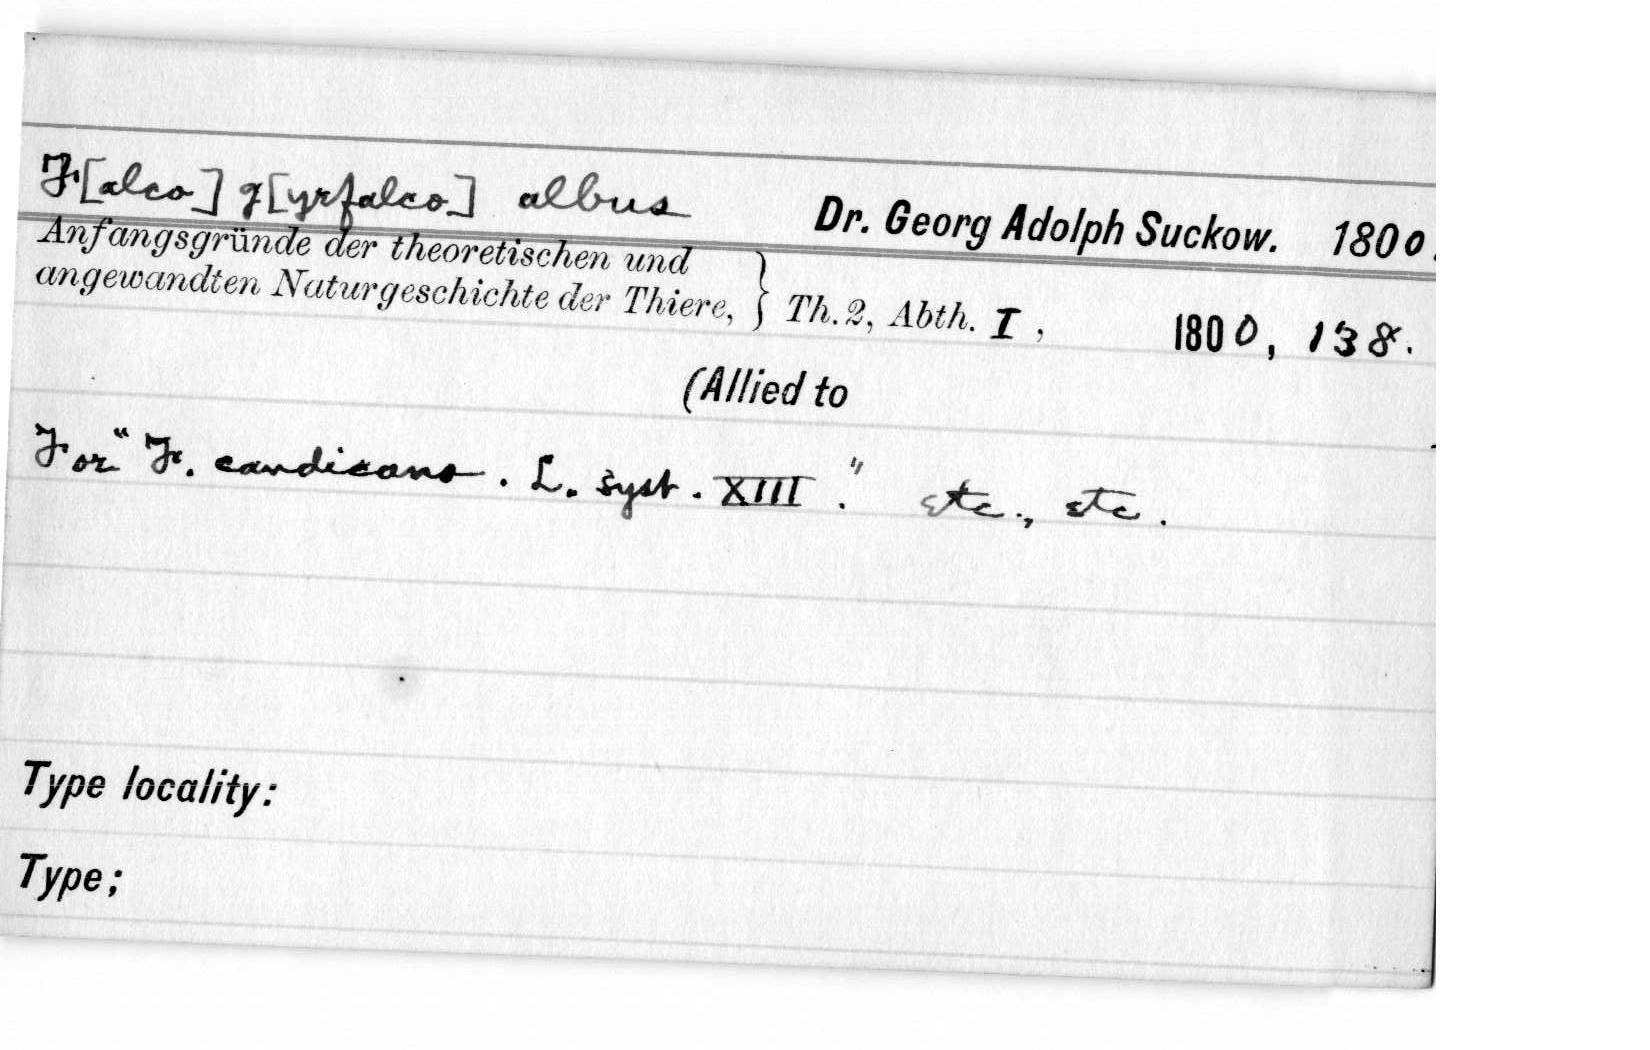 F.[alco] g[yrfalco] albus Dr. Georg Adolph Suckow. 1800.
Anfangsgründe der theoretischen und
angewandten Naturgeschichte der Thiere, } Th. 2, Abth. I, 1800, 138.
(Allied to
For "F. candicans. L. syst. XIII." etc., etc.
Type locality:
Type;